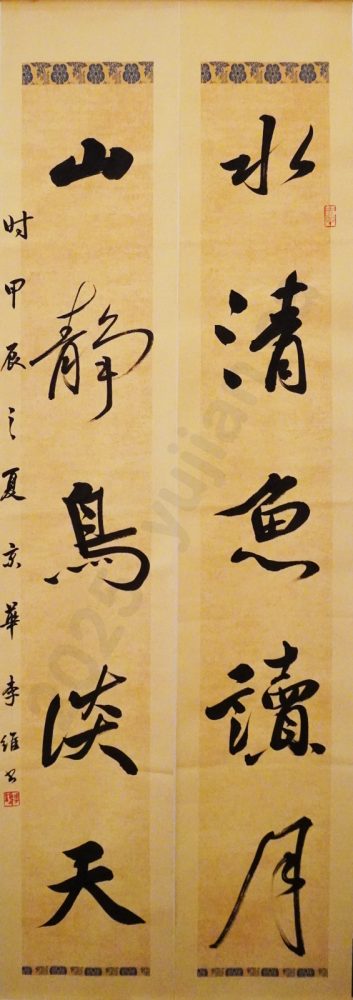 水清魚讀月
山靜鳥談天
时甲辰之夏京華李維书
2025 yujian